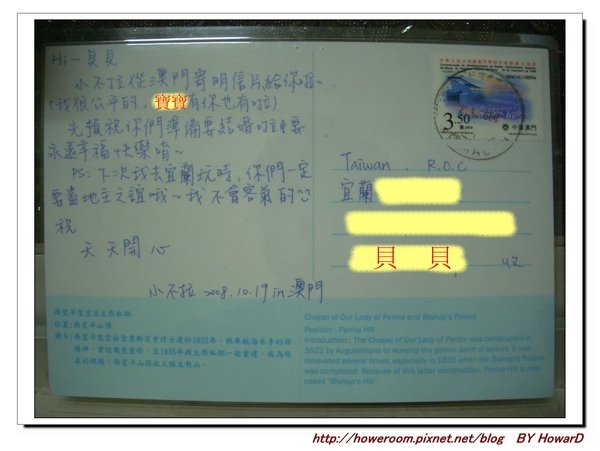 Hi~ 貝貝
小不拉從澳門寄明信片給你啦~
(我很公平的, 寶寶有你也有啦)
先預祝你們準備要結婚啦!要
永遠幸福快樂唷~
PS:下次我去宜蘭玩時,你們一定
要盡地主之誼哦~我不會客氣的
祝
天天開心
小不拉 2008.10.19 in 澳門
MACAU, CHINA
3.50
中國澳門
Taiwan. R.O.C
宜蘭
貝 貝 收
西望洋聖堂及主教私邸
位置:西望洋山頂
簡介:西望洋聖堂由聖奧斯定會修士建於1622年,供奉航海水手的保
護神。曾經幾度重修,至1935年與主教私邸一起重建,成為現
在的規模。西望洋山因此又稱主教山。
Chapel of Our Lady of Penha and Bishop's Palace
Position : Penha Hill
Introduction : The Chapel of Our Lady of Penha was constructed in
1622 by Augustinians to worship the patron saint of sailors. It was
renovated several times, especially in 1835 when the Bishop's Palace
was completed. Because of this latter construction, Penha Hill is also
called "Bishop's Hill".
http://howeroom.pixnet.net/blog BY HowarD